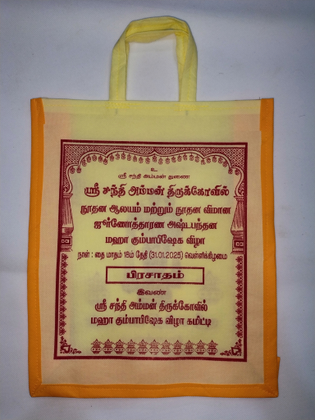 உ
ஸ்ரீ சந்தி அம்மன் துணை
ஸ்ரீ சந்தி அம்மன் திருக்கோவில்
நூதன ஆலயம் மற்றும் நூதன விமான
ஜீர்ணோத்தாரண அஷ்டபந்தன
மஹா கும்பாபிஷேக விழா
நாள் : தை மாதம் 18ம் தேதி (31.01.2025) வெள்ளிக்கிழமை
பிரசாதம்
இவண்
ஸ்ரீ சந்தி அம்மன் திருக்கோவில்
மஹா கும்பாபிஷேக விழா கமிட்டி